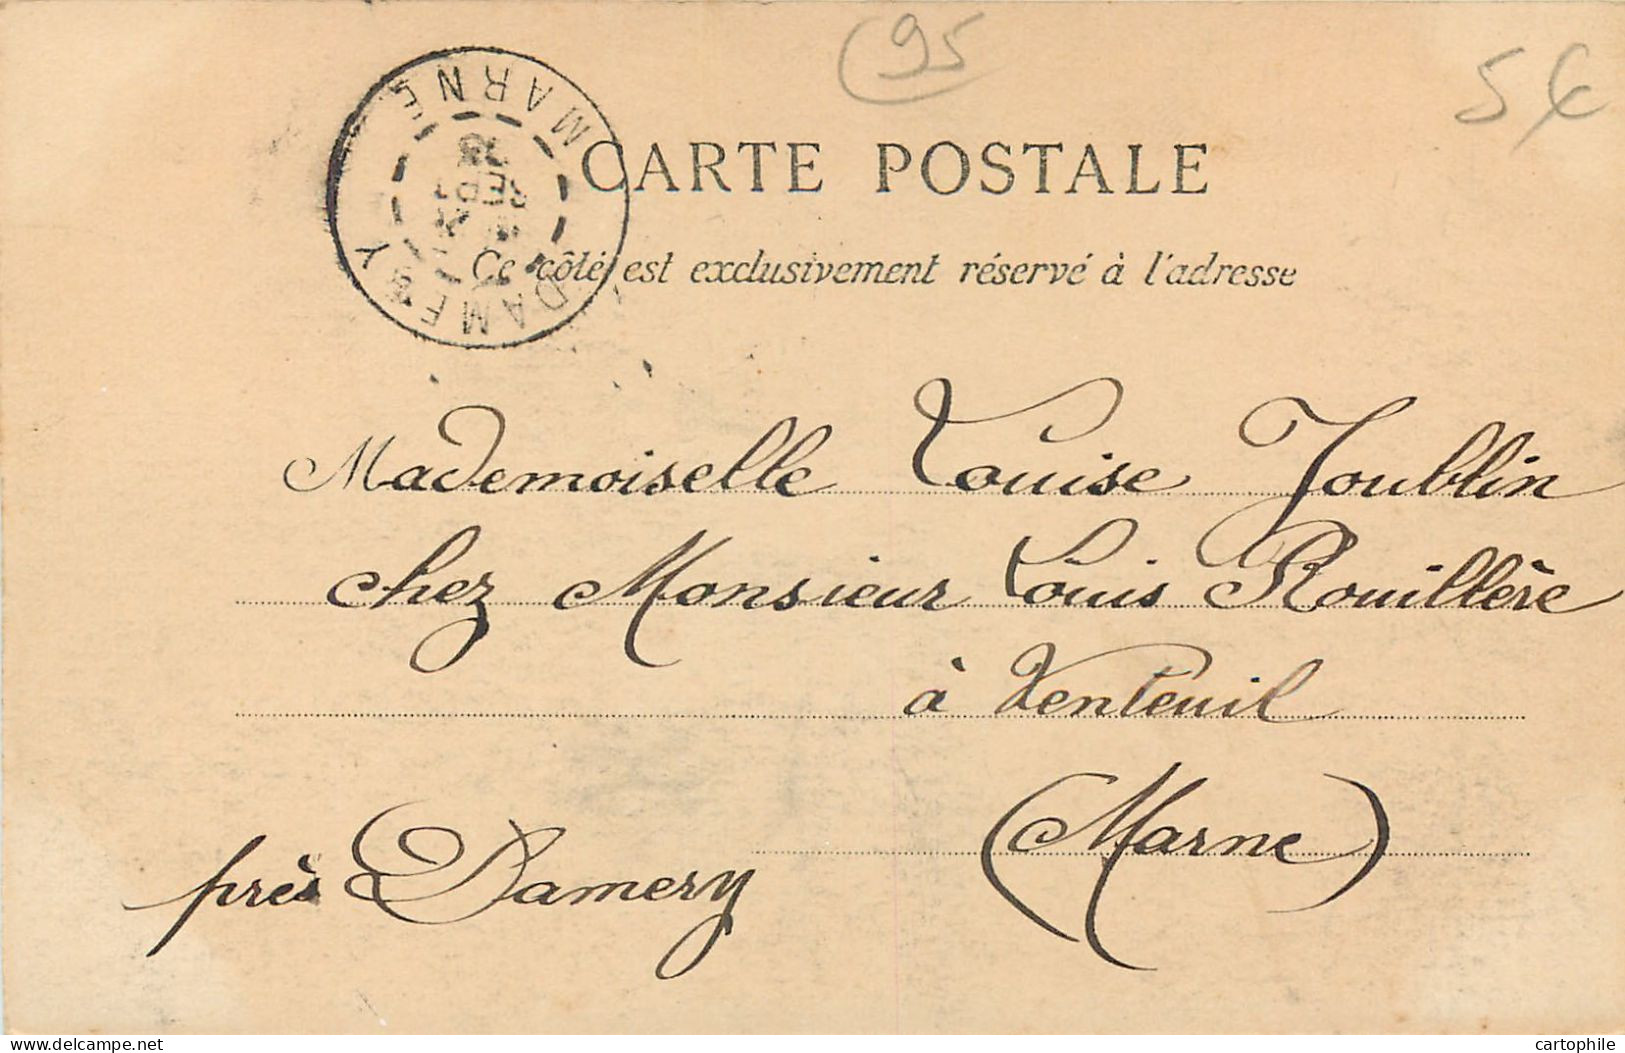 95
5€
CARTE POSTALE
Ce côté est exclusivement réservé à l'adresse
DAMERY MARNE
Mademoiselle Louise Joublin
chez Monsieur Louis Rouillère
à Venteuil
(Marne)
près Damery
delcampe.net
cartophile